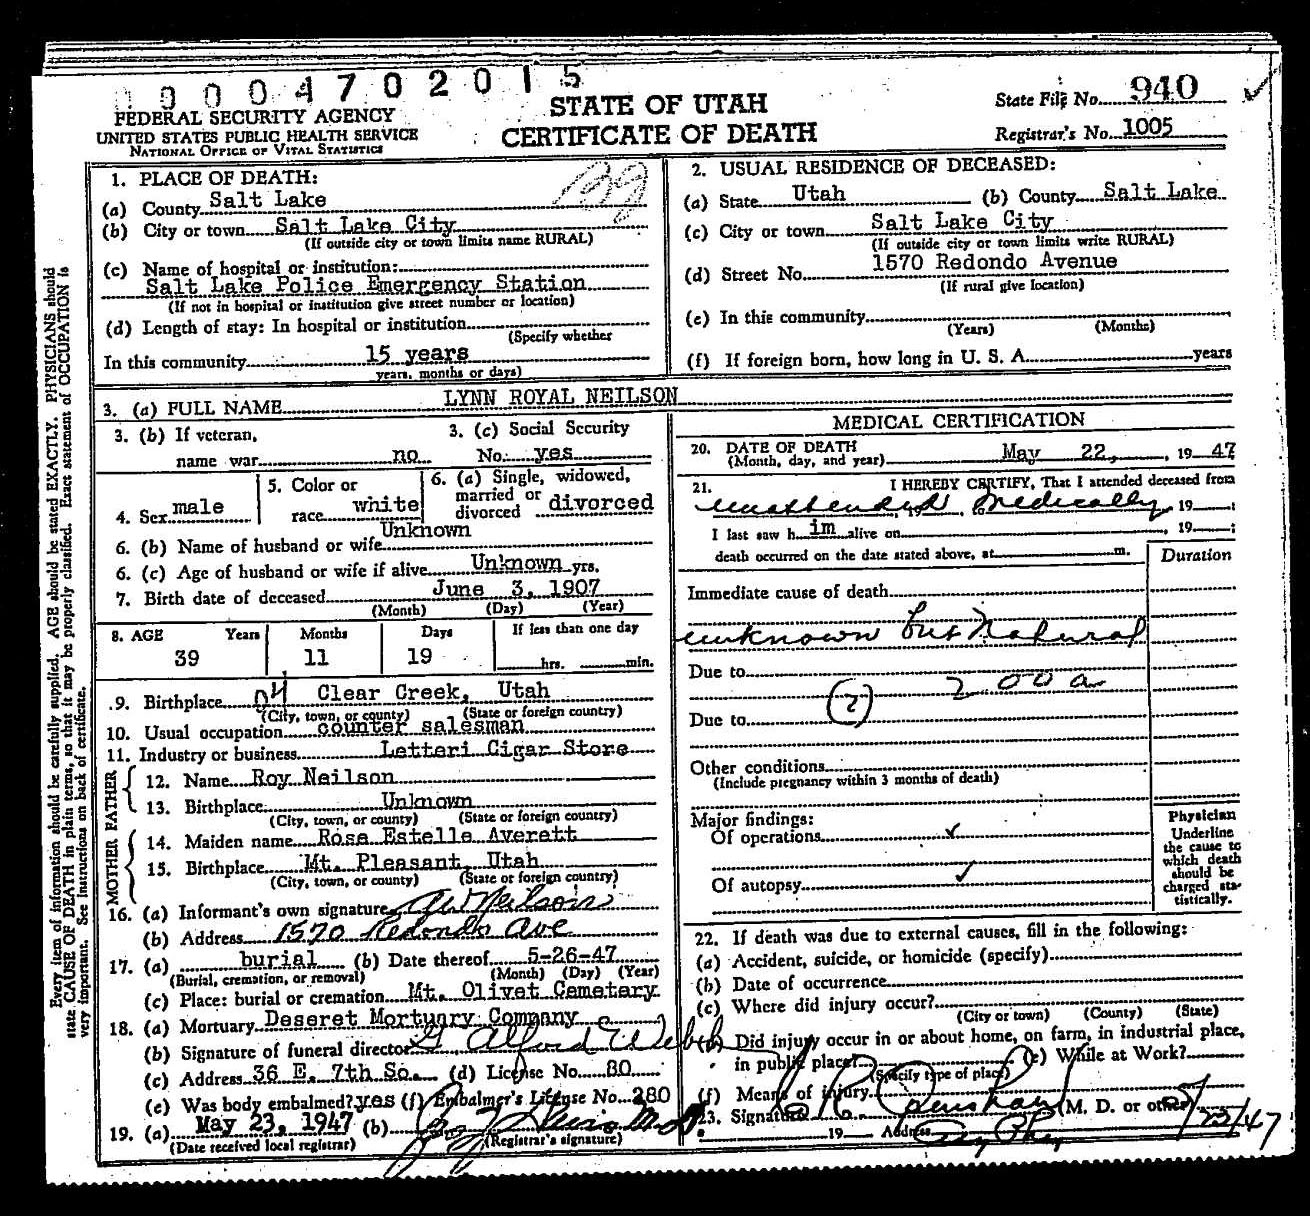 00004702015
FEDERAL SECURITY AGENCY
UNITED STATES PUBLIC HEALTH SERVICE
NATIONAL OFFICE OF VITAL STATISTICS
STATE OF UTAH
CERTIFICATE OF DEATH
State File No. 940
Registrar's No. 1005
Every item of information should be carefully supplied. AGE should be stated EXACTLY. PHYSICIANS should
state CAUSE OF DEATH in plain terms, so that it may be properly classified. Exact statement of OCCUPATION is
very important. See instructions on back of certificate.
1. PLACE OF DEATH:
(a) County Salt Lake
(b) City or town Salt Lake City
(If outside city or town limits name RURAL)
(c) Name of hospital or institution:
Salt Lake Police Emergency Station
(If not in hospital or institution give street number or location)
(d) Length of stay: In hospital or institution
(Specify whether
In this community 15 years
years, months or days)
2. USUAL RESIDENCE OF DECEASED:
(a) State Utah (b) County Salt Lake
(c) City or town Salt Lake City
(If outside city or town limits write RURAL)
(d) Street No. 1570 Redondo Avenue
(If rural give location)
(e) In this community
(Years) (Months)
(f) If foreign born, how long in U. S. A. years
3. (a) FULL NAME LYNN ROYAL NEILSON
3. (b) If veteran,
name war no
3. (c) Social Security
No. yes
4. Sex male
5. Color or
race white
6. (a) Single, widowed,
married or
divorced divorced
6. (b) Name of husband or wife Unknown
6. (c) Age of husband or wife if alive Unknown yrs.
7. Birth date of deceased June 3, 1907
(Month) (Day) (Year)
8. AGE Years Months Days If less than one day
39 11 19 hrs. min.
9. Birthplace 04 Clear Creek, Utah
(City, town, or county) (State or foreign country)
10. Usual occupation counter salesman
11. Industry or business Letteri Cigar Store
FATHER
12. Name Roy Neilson
13. Birthplace Unknown
(City, town, or county) (State or foreign country)
MOTHER
14. Maiden name Rose Estelle Averett
15. Birthplace Mt. Pleasant, Utah
(City, town, or county) (State or foreign country)
16. (a) Informant's own signature Neilson
(b) Address 1570 Redondo Ave
17. (a) burial (b) Date thereof 5-26-47
(Burial, cremation, or removal) (Month) (Day) (Year)
(c) Place: burial or cremation Mt. Olivet Cemetary
18. (a) Mortuary Deseret Mortuary Company
(b) Signature of funeral director Alford
(c) Address 36 E. 7th So. (d) License No. 80
(e) Was body embalmed? yes (f) Embalmer's License No. 280
19. (a) May 23, 1947 (b)
(Date received local registrar) (Registrar's signature)
MEDICAL CERTIFICATION
20. DATE OF DEATH
(Month, day, and year) May 22, 1947
21. I HEREBY CERTIFY, That I attended deceased from
unattended Medically, 19
I last saw h im alive on , 19 ;
death occurred on the date stated above, at m.
Duration
Immediate cause of death
unknown but Natural
Due to
200a
(2)
Due to
Other conditions
(Include pregnancy within 3 months of death)
Major findings:
Of operations ✓
Of autopsy ✓
Physician
Underline
the cause to
which death
should be
charged sta-
tistically.
22. If death was due to external causes, fill in the following:
(a) Accident, suicide, or homicide (specify)
(b) Date of occurrence
(c) Where did injury occur?
(City or town) (County) (State)
Did injury occur in or about home, on farm, in industrial place,
in public place? (e) While at Work?
(Specify type of place)
(f) Means of injury
23. Signature (M. D. or other)
19 Address 5/23/47